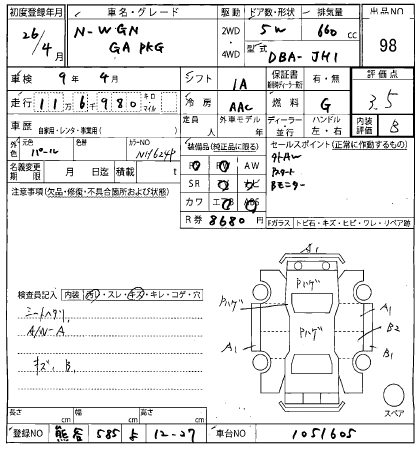 初度登録年月 車名・グレード 駆動 ドア数・形状 排気量 出品NO
26/4月 N-WGN 2WD 5W 660cc 98
G A PKG 4WD 型式 DBA-JH1
車検 9年4月 シフト IA 保証書 有・無 評価点
走行 11万6千980 キロ マイル 冷房 AAC 燃料 G 3.5
車歴 自家用・レンタ・事業用( ) 定員 人 外車モデル 年 ディーラー 並行 ハンドル 左・右 内装評価 B
外色 元色 パール 色替 カラーNO NH624P 装備品(純正品に限る) セールスポイント(正常に作動するもの)
名義変更期限 月 日迄 積載 t PS PW AW 外AW
注意事項(欠品・修復・不具合箇所および状態) SR ナビ Pスタート
カワ エアB ABS Bモニター
R券 8680円 Fガラス トビ石・キズ・ヒビ・ワレ・リペア跡
A1
Pハゲ
Pハゲ
検査員記入 内装 汚レ・スレ・キズ・キレ・コゲ・穴 A1
シートヘタリ Pハゲ B2
A/N-A A1 B1
キズ、B
スペア
長さ cm 幅 cm 高さ cm
登録NO 熊谷 585 よ 12-27 車台NO 1051605